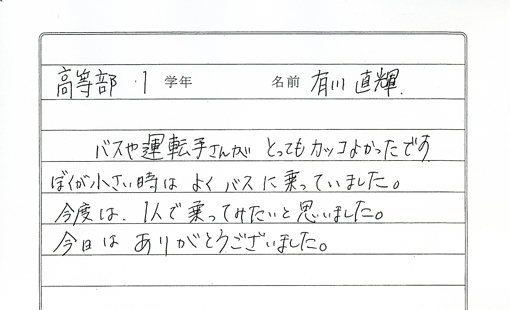 高等部 1 学年 名前 有川 直輝
バスや運転手さんが とってもカッコよかったです
ぼくが小さい時は よく バスに乗っていました。
今度は、1人で乗ってみたいと思いました。
今日は ありがとうございました。